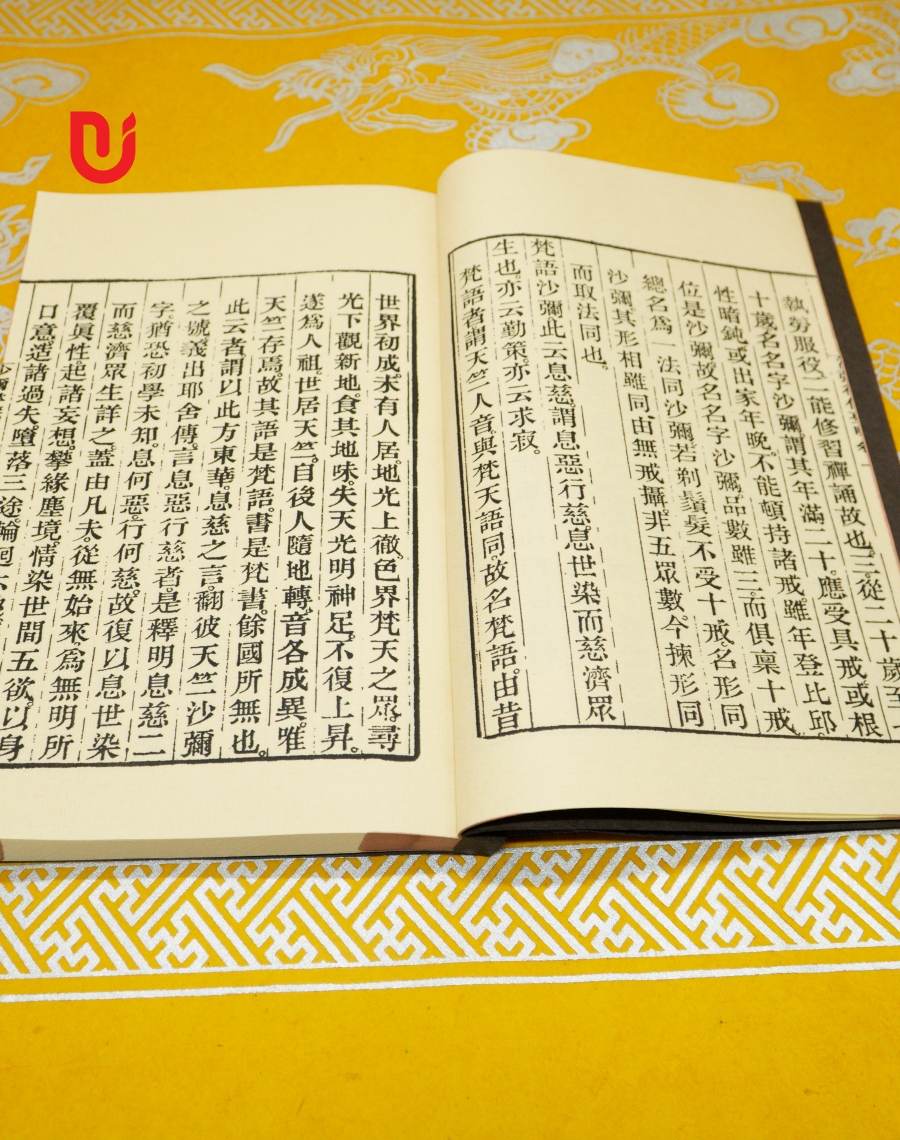 執勞服役。二能修習禪誦故也。三從二十歲至
十歲名名字沙彌。謂其年滿二十。應受具戒。或根
性暗鈍。或出家年晚。不能頓持諸戒。雖年登比邱
位。是沙彌。故名名字沙彌。品數雖三。而俱稟十戒。
總名為一法同沙彌。若剃鬚髮。不受十戒。名形同
沙彌。其形相雖同。由無戒攝。非五眾數。今揀形同
而取法同也。
梵語沙彌。此云息慈。謂息惡行慈。息世染而慈濟眾
生也。亦云勤策。亦云求寂。
梵語者。謂天竺人音。與梵天語同。故名梵語。由昔
世界初成。未有人居。地光上徹。色界梵天之眾。尋
光下觀新地。食其地味。失天光明神足。不復上昇。
遂為人祖。世居天竺。自後人隨地轉。音各成異。唯
天竺存焉。故其語是梵語。書是梵書。餘國所無也。
此云者。謂以此方東華息慈之言。翻彼天竺沙彌
之號。義出耶舍傳。言息惡行慈者。是釋明息慈二
字。猶恐初學未知。息何惡。行何慈。故復以息世染
而慈濟眾生詳之。蓋由凡夫。從無始來。為無明所
覆眞性。起諸妄想。攀緣塵境。情染世間五欲。以身
口意造諸過失。墮落三途。輪迴